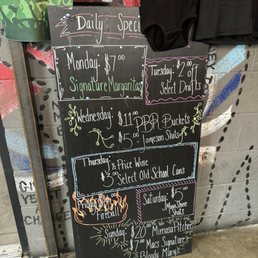 Daily Speci
Monday: $7.00
Signature Margaritas
Tuesday: $2 off
Select Drafts
Wednesday: $11.00 PBR Buckets
$5.00 Jameson Shots
Thursday: ½ Price Wine
$3.00 Select Old School Cans
Friday:
Fireball
Saturday: $5
Shots
Sunday: $20 Mimosa Pitchers
$7 Macs Signature
Bloody Marys